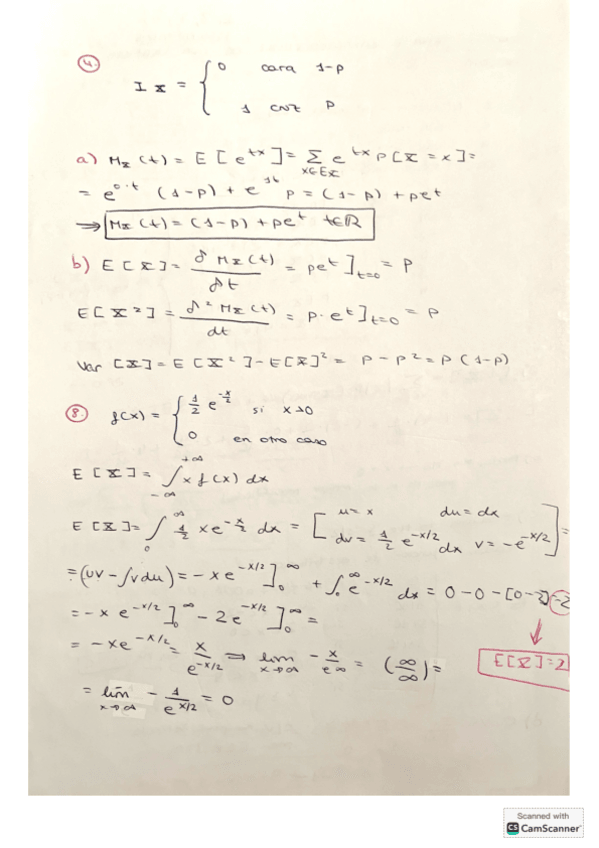 4.
I X = { 0 cara 1-p
1 cruz p
a) Mx(t) = E[e^tx] = Σ x∈Ex e^tx P[X = x] =
= e^0·t (1-p) + e^1t p = (1-p) + pe^t
⟹ Mx(t) = (1-p) + pe^t t∈R
b) E[X] = δ Mx(t) / δt = pe^t ]t=0 = p
E[X²] = δ² Mx(t) / dt = p·e^t ]t=0 = p
Var[X] = E[X²] - E[X]² = p - p² = p(1-p)
8. f(x) = { 1/2 e^-x/2 si x>0
0 en otro caso
E[X] = ∫ -∞ +∞ x f(x) dx
E[X] = ∫ 0 ∞ 1/2 xe^-x/2 dx = [ u = x du = dx
dv = 1/2 e^-x/2 dx v = -e^-x/2 ] =
= (uv - ∫vdu) = -xe^-x/2 ]0 ∞ + ∫0 ∞ e^-x/2 dx = 0-0-[0-2] = 2
= -x e^-x/2 ]0 ∞ - 2e^-x/2 ]0 ∞ =
= -xe^-x/2 = x / e^-x/2 ⟹ lim x→∞ - x / e^∞ = (∞/∞) =
E[X] = 2
= lim x→∞ - 1 / e^x/2 = 0
Scanned with
CS CamScanner